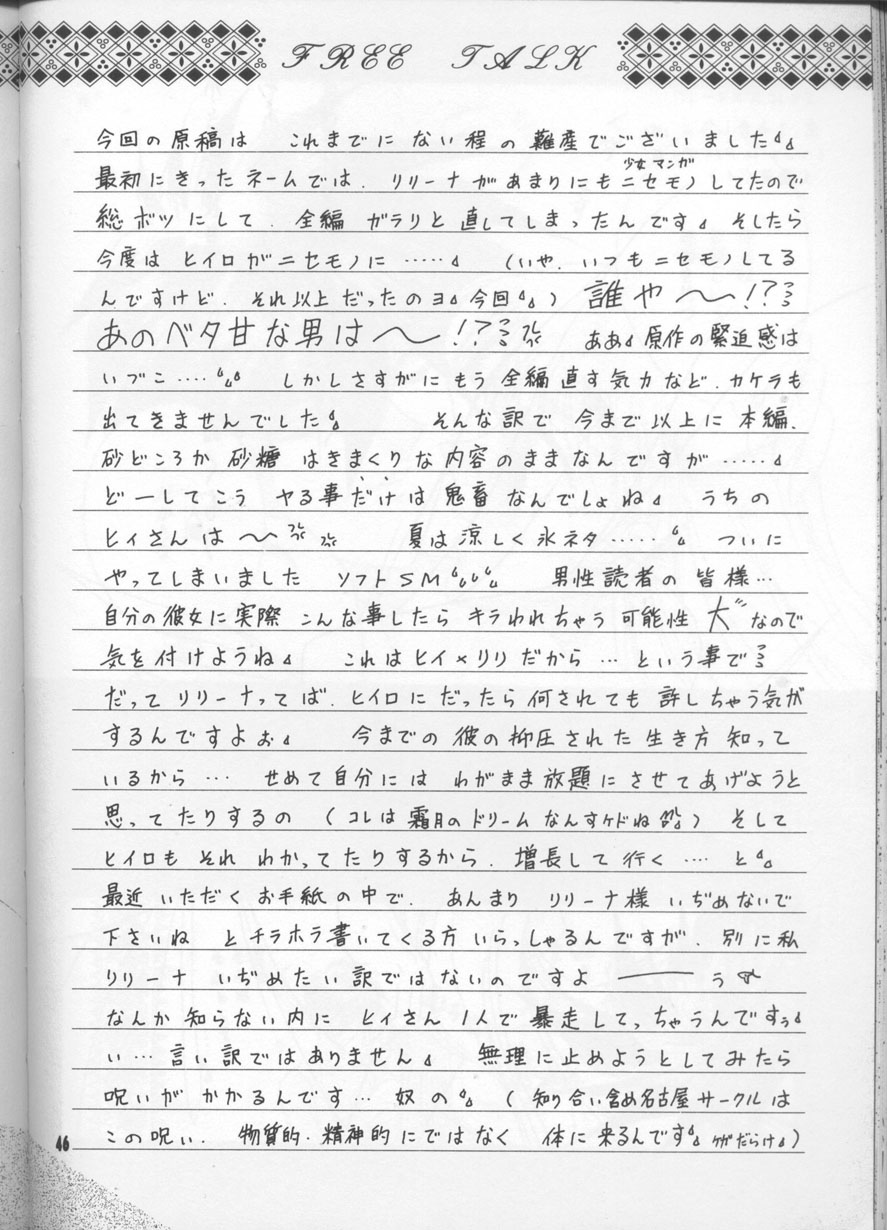 FREE TALK
今回の原稿は これまでに ない程 の 難産でございました
少女マンガ
最初にきったネームでは、リリーナがあまりにもニセモノしてたので
総ボツにして、全編 ガラリと直してしまったんです そしたら
今度は ヒイロがニセモノに ‥‥‥ (いや、いつもニセモノしてる
んですけど、それ以上だったのヨ 今回 ) 誰や〜!?
あのベタ甘な男は〜!? ああ 原作の緊迫感は
いづこ‥‥ しかしさすがにもう 全編直す気力など、カケラも
出てきませんでした そんな訳で 今まで以上に 本編、
砂どころか 砂糖 はきまくりな内容のままなんですが ‥‥‥
どーしてこう ヤる事だけは 鬼畜 なんでしょね うちの
ヒイさんは〜 夏は涼しく氷ネタ‥‥‥ ついに
やってしまいました ソフトSM 男性読者の皆様…
自分の彼女に実際 こんな事したら キラわれちゃう 可能性 大 なので
気を付けようね これはヒイ×リリだから … という事で
だって リリーナってば、ヒイロにだったら何されても 許しちゃう気が
するんですよぉ 今までの 彼の抑圧された生き方 知って
いるから … せめて自分には わがまま放題にさせてあげようと
思ってたりするの (コレは 霜月のドリーム なんすケドね ) そして
ヒイロも それ わかってたりするから、増長して行く ‥‥ と
最近 いただく お手紙の中で、 あんまり リリーナ様 いぢめないで
下さいね とチラホラ書いてくる方 いらっしゃるんですが、別に私
リリーナ いぢめたい訳ではないのですよ ―― う
なんか 知らない内に ヒイさん 1人で 暴走してっちゃうんですぅ
い… 言い訳ではありません 無理に止めようとしてみたら
呪いが かかるんです… 奴の ( 知り合い含め名古屋サークルは
この呪い、 物質的・精神的にではなく 体に来るんです ケガだらけ )
46